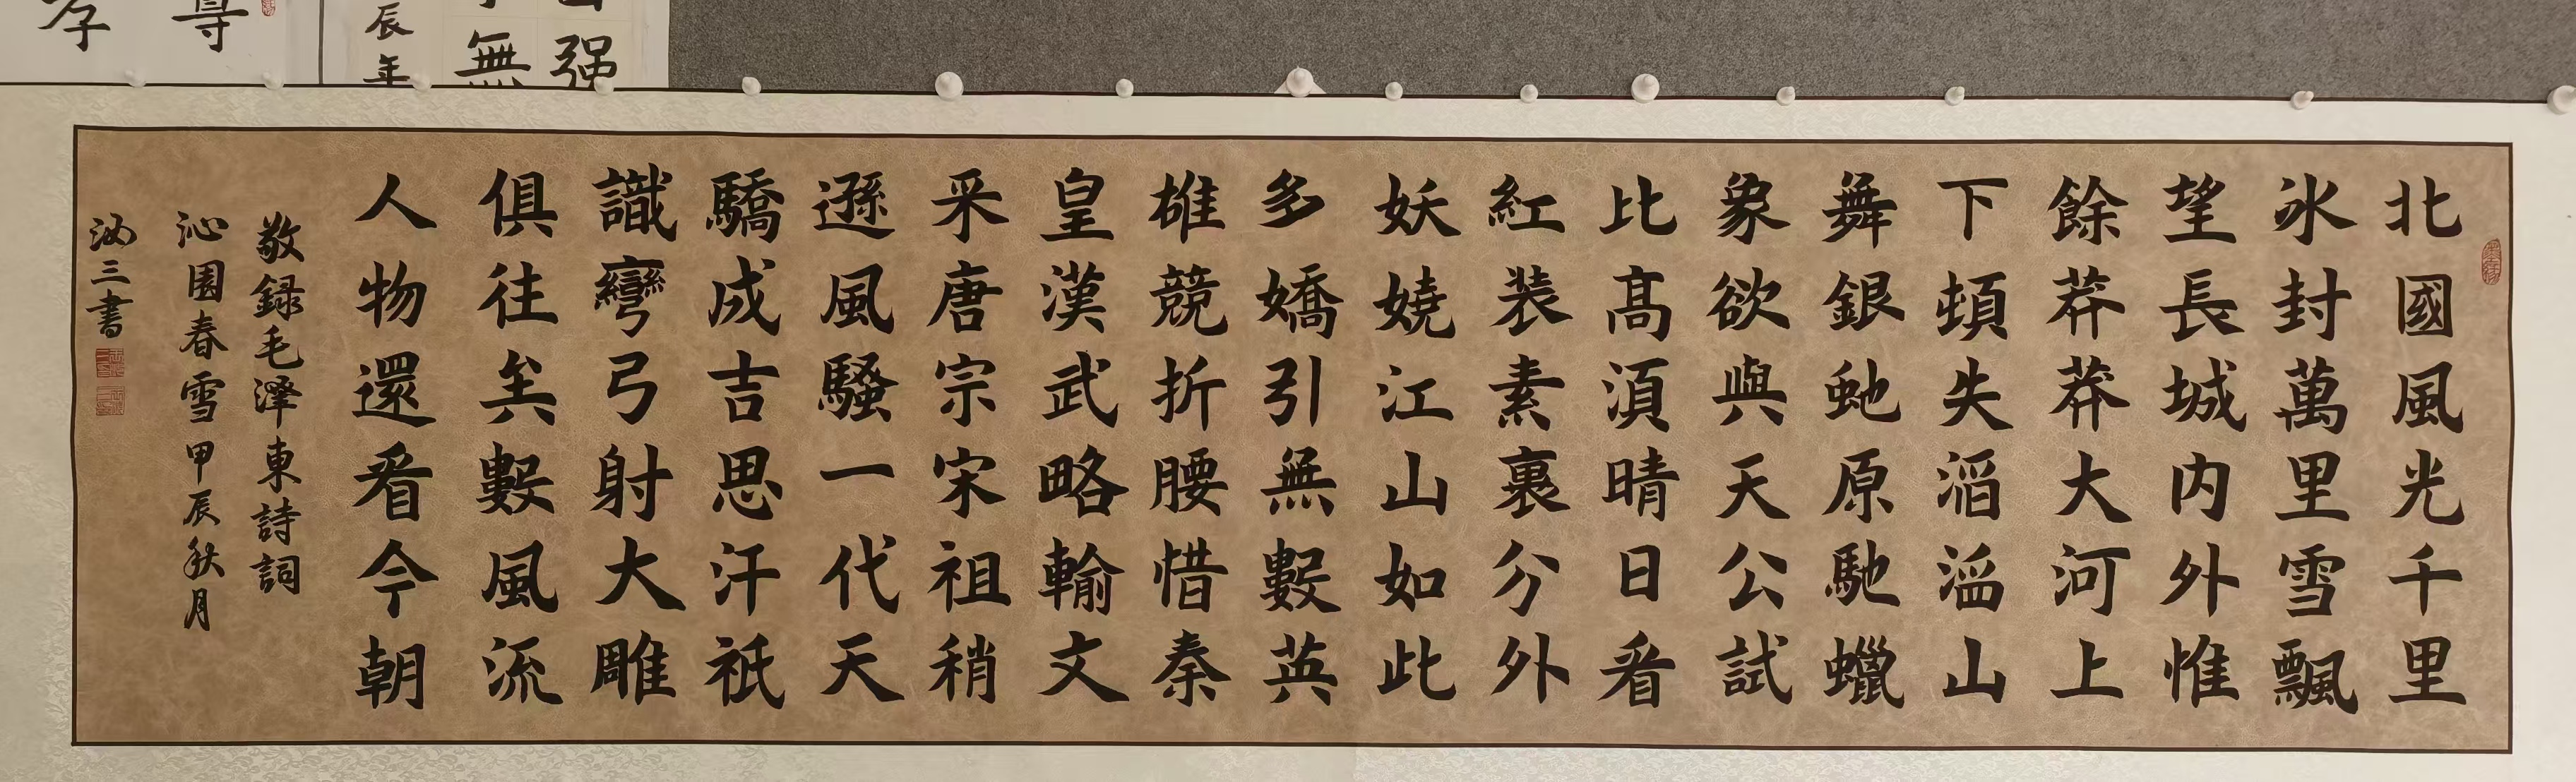 强
無
辰年
北國風光千里
冰封萬里雪飄
望長城内外惟
餘莽莽大河上
下頓失滔滔山
舞銀虵原馳蠟
象欲與天公試
比髙須晴日看
紅装素裹分外
妖嬈江山如此
多嬌引無數英
雄競折腰惜秦
皇漢武略輸文
采唐宗宋祖稍
遜風騷一代天
驕成吉思汗祇
識彎弓射大雕
俱往矣數風流
人物還看今朝
敬録毛澤東詩詞
沁園春雪甲辰秋月
三書